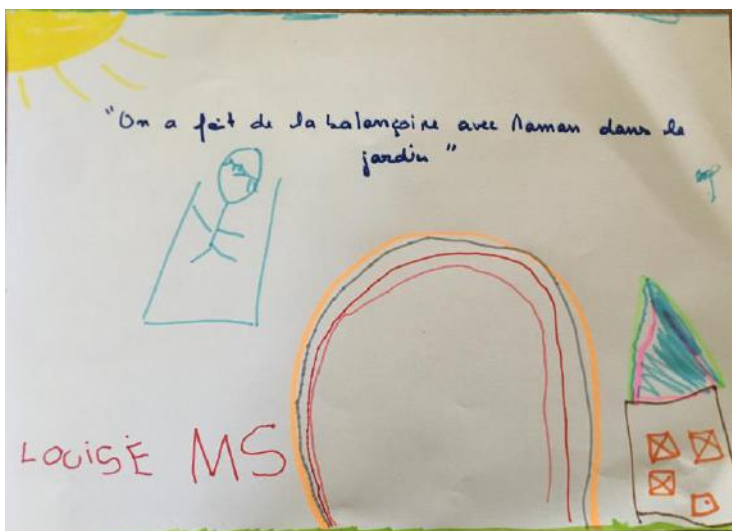 "On a fait de la balançoire avec Maman dans le
jardin"
LOUISE MS